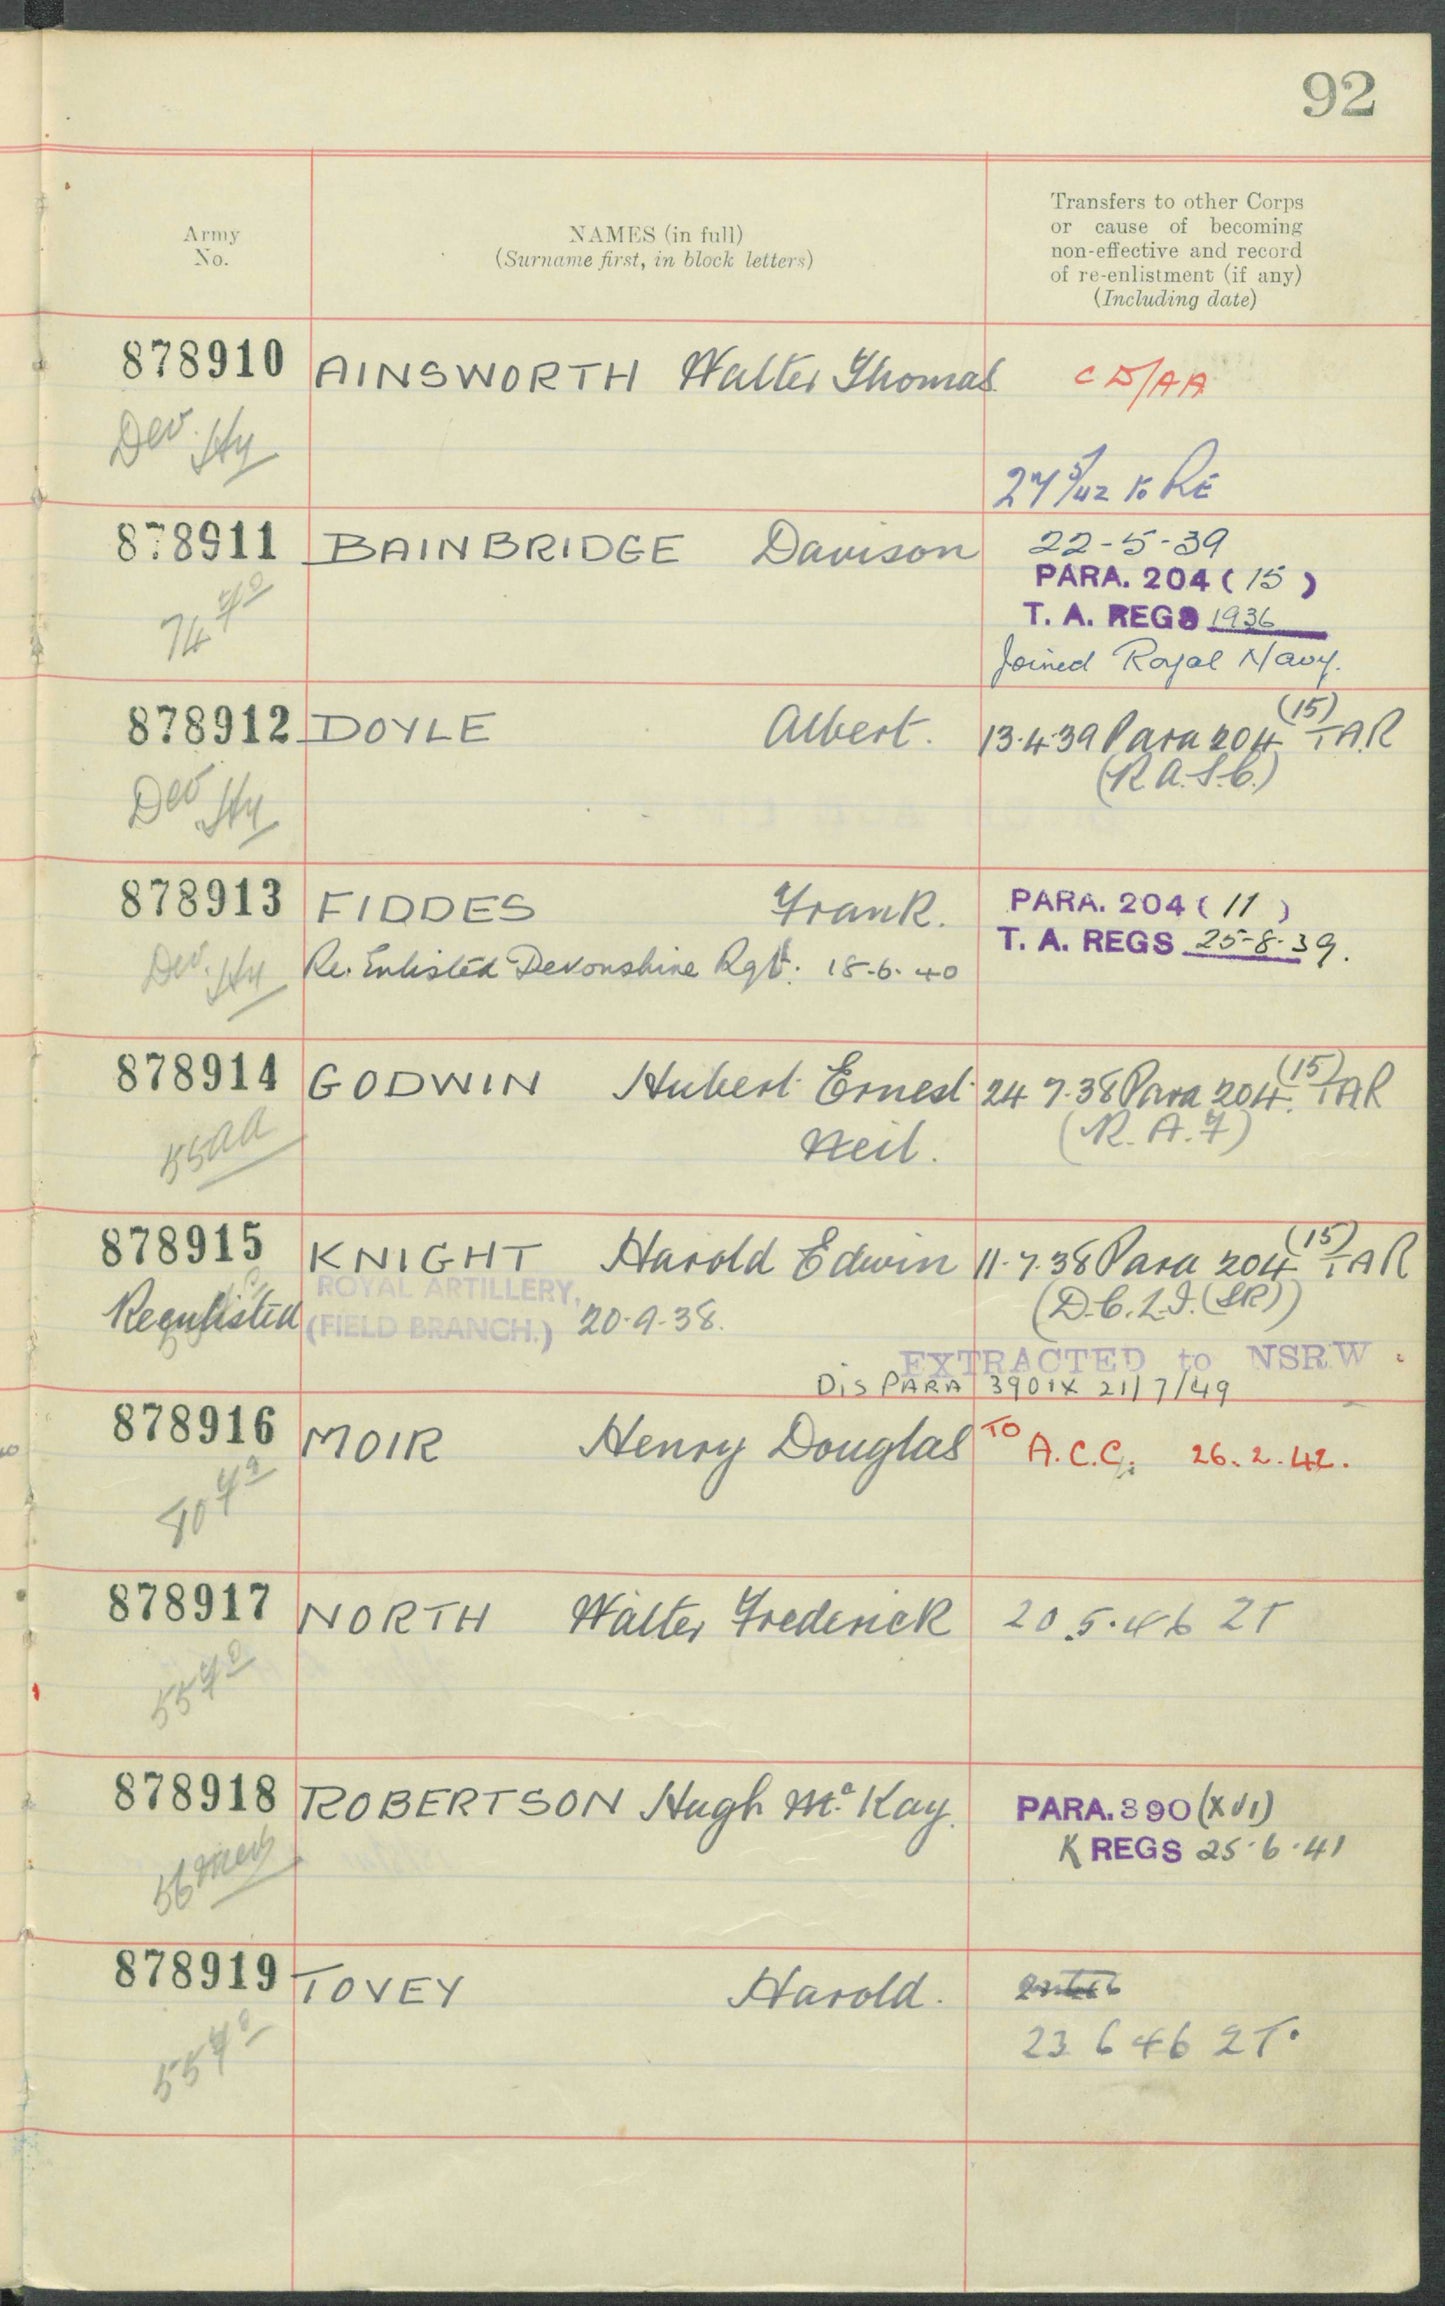 92
Army
No.
NAMES (in full)
(Surname first, in block letters)
Transfers to other Corps
or cause of becoming
non-effective and record
of re-enlistment (if any)
(Including date)
878910 AINSWORTH Walter Thomas CD/AA
Dev. Hy
27/5/42 to RE
878911 BAINBRIDGE Davison 22-5-39
PARA. 204 (15)
74 Fd T. A. REGS 1936
Joined Royal Navy.
878912 DOYLE Albert. 13.4.39 Para 204 (15) TAR
Dev. Hy (R.A.S.C.)
878913 FIDDES Frank. PARA. 204 (11)
T. A. REGS 25-8-39.
Dev. Hy Re. Enlisted Devonshire Rgt. 18-6-40
878914 GODWIN Hubert Ernest 24 7.38 Para 204 (15) TAR
55 AA Neil. (R.A.F)
878915 KNIGHT Harold Edwin 11.7.38 Para 204 (15) TAR
ROYAL ARTILLERY,
Reenlisted (FIELD BRANCH.) 20.9.38. (D.C.L.I.(SR))
EXTRACTED to NSRW
DIS PARA 390 IX 21/7/49
878916 MOIR Henry Douglas TO A.C.C. 26.2.42.
878917 NORTH Walter Frederick 20.5.46 ZT
55 Fd
878918 ROBERTSON Hugh Mc. Kay. PARA. 390 (XVI)
K REGS 25.6.41
56
878919 TOVEY Harold.
55 Fd 23 6 46 ZT.